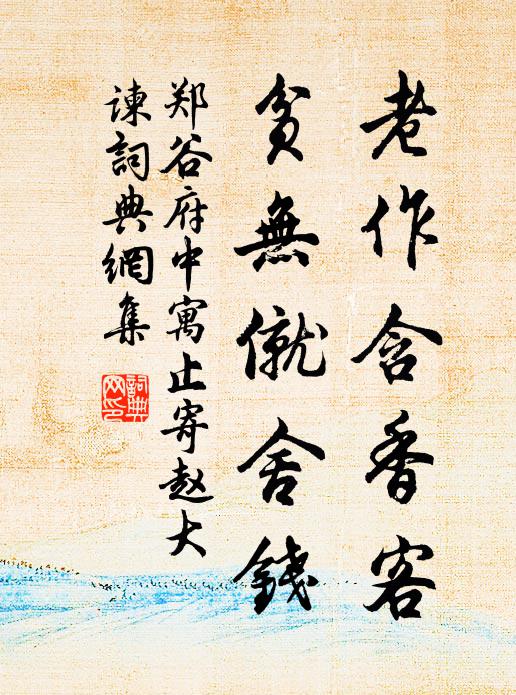 老作含香客
貧無僦舍錢
郑谷府中寓止寄赵大
谏詞典網集
詞典
网印